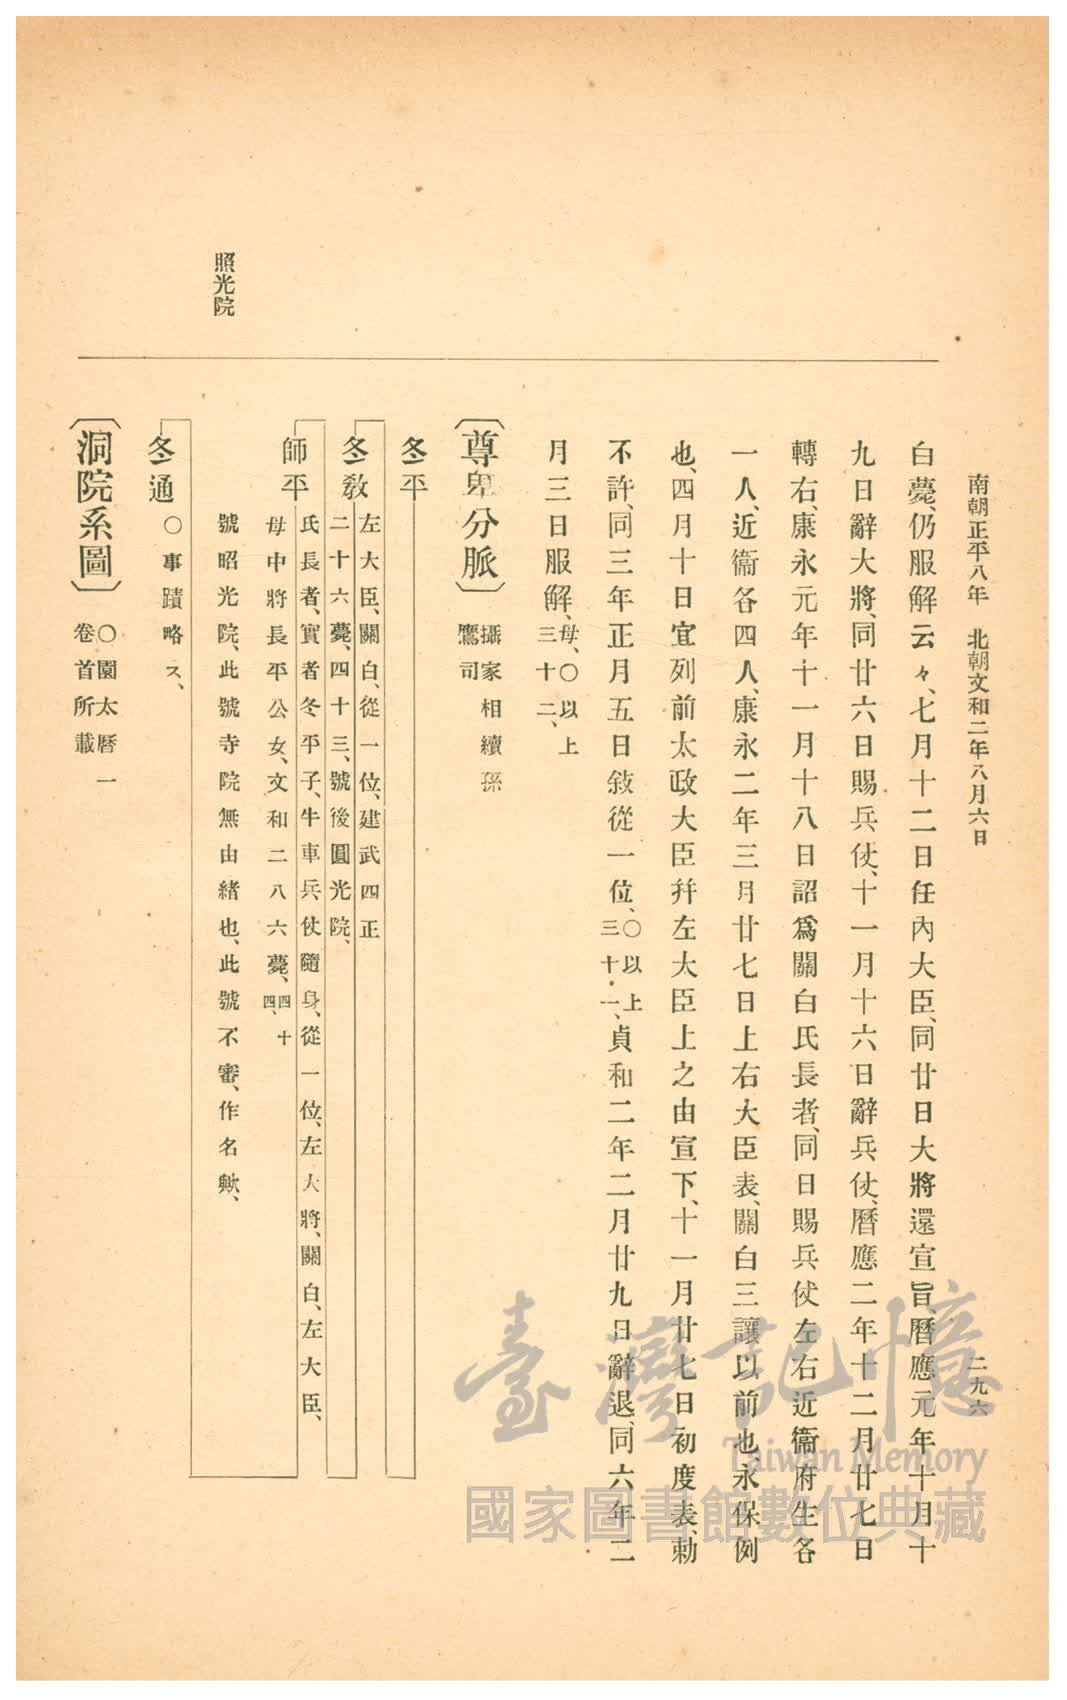 南朝正平八年 北朝文和二年八月六日
二九六
白薨、仍服解云々、七月十二日任內大臣、同廿日大將還宣旨、曆應元年十月十
九日辭大將、同廿六日賜兵仗、十一月十六日辭兵仗、曆應二年十二月廿七日
轉右、康永元年十一月十八日詔爲關白氏長者、同日賜兵仗左右近衞府生各
一人、近衞各四人、康永二年三月廿七日上右大臣表、關白三讓以前也、永保例
也、四月十日宜列前太政大臣幷左大臣上之由宣下、十一月廿七日初度表、勅
不許、同三年正月五日敍從一位、〇以上三十一、貞和二年二月廿九日辭退、同六年二
月三日服解、母、〇以上三十二、
〔尊卑分脈〕 攝家相續孫
鷹司
冬平
冬敎 左大臣、關白、從一位、建武四正
二十六薨、四十三、號後圓光院、
師平 氏長者、實者冬平子、牛車兵仗隨身、從一位、左大將、關白、左大臣、
母中將長平公女、文和二八六薨、四十四、
號昭光院、此號寺院無由緖也、此號不審、作名歟、
照光院
冬通 〇事蹟略ス、
〔洞院系圖〕 〇園太曆一
卷首所載
臺灣記憶
Taiwan Memory
國家圖書館數位典藏